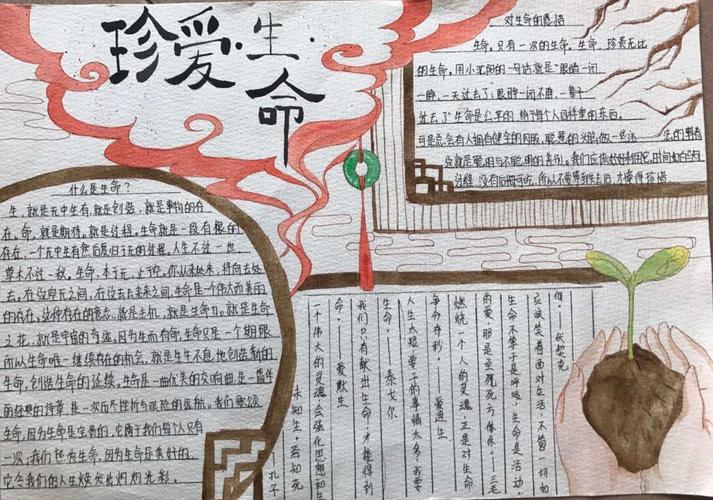 珍爱·生命
什么是生命？
生，就是无中生有，就是创造，就是事物的存
在，命，就是期待，就是过程，生命就是一段有限的
存在，一个无中生有然后复归于无的过程，人生不过一世，
草木不过一秋，生命，本于无，止于
你从来处来，将向去处
去，在这空无之间，在这去与未来之间，生命是一个伟大而美的
的存在，这种存在的意义，就是生机，就是生命力。就是生命
之花，就是宇宙的奇迹，因为生而有命，生命只是一个期限
所以生命唯一继续存在的机会，就是生生不息地创造新的
生命，创造生命的延续，生命是一曲优美的交响曲，是一篇华
丽经典的诗章，是一次历经挫折与艰险的远航。我们歌颂
生命，因为生命是宝贵的，它属于我们每个人只有
一次；我们热爱生命，因为生命是美好的，
它令我们的人生焕发出灼灼光彩。
对生命的感悟
生命，只有一次的生命，生命，珍贵无比
的生命，用小沈阳的一句话就是"眼睛一闭
一睁，一天过去了；眼睛一闭不睁，一辈子
过去了"生命是公平的，给予每个人同样重的东西。
可是总会有人拥有健全的四肢，聪慧的
这就是聪明与不聪明的表现。我们应该好好利用它，时间如白驹
过隙，没有后悔可言，所以不要等到失去后，才懂得珍惜
但。——伏契克
应该笑着面对生活，不管一切如
生命不等于是呼吸，生命是活动。
的爱，那是至死方休。——三毛
燃烧一个人的灵魂正是对生命
争分夺秒。——爱迪生
人生太短，要干的事情太多，我要
生命。——泰戈尔
我们只有献出生命，才能得到
命。——爱默生
一个伟大的灵魂，会强化思想和生
未知生，焉知死
孔子